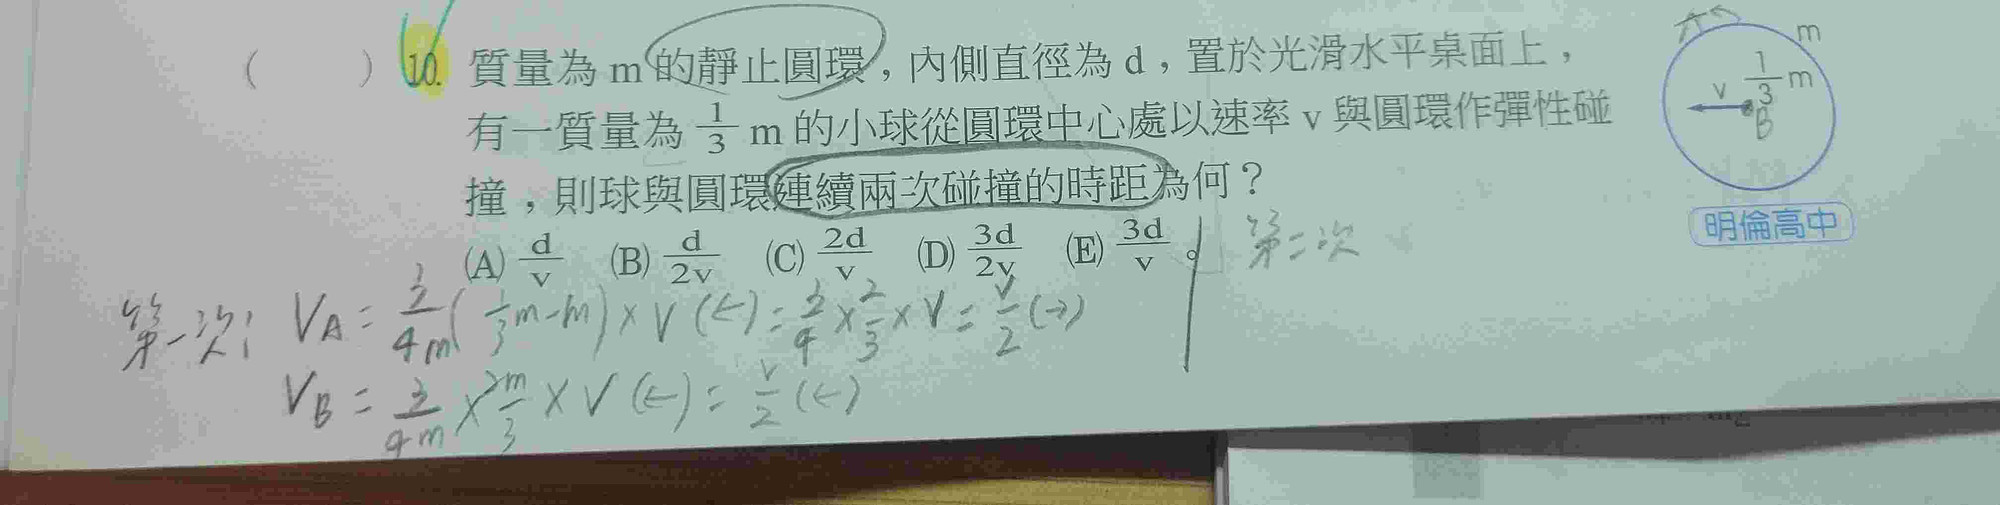 ( ) 10. 質量為 m 的靜止圓環,內側直徑為 d,置於光滑水平桌面上,
有一質量為 1/3 m 的小球從圓環中心處以速率 v 與圓環作彈性碰
撞,則球與圓環連續兩次碰撞的時距為何?
(A) d/v (B) d/2v (C) 2d/v (D) 3d/2v (E) 3d/v 。
m
v 1/3 m
B
明倫高中
第二次
第一次: VA = 3/4m (1/3 m-m) × V (←) = 3/4 × 2/3 × V = V/2 (→)
VB = 3/4m × 2m/3 × V (←) = V/2 (←)